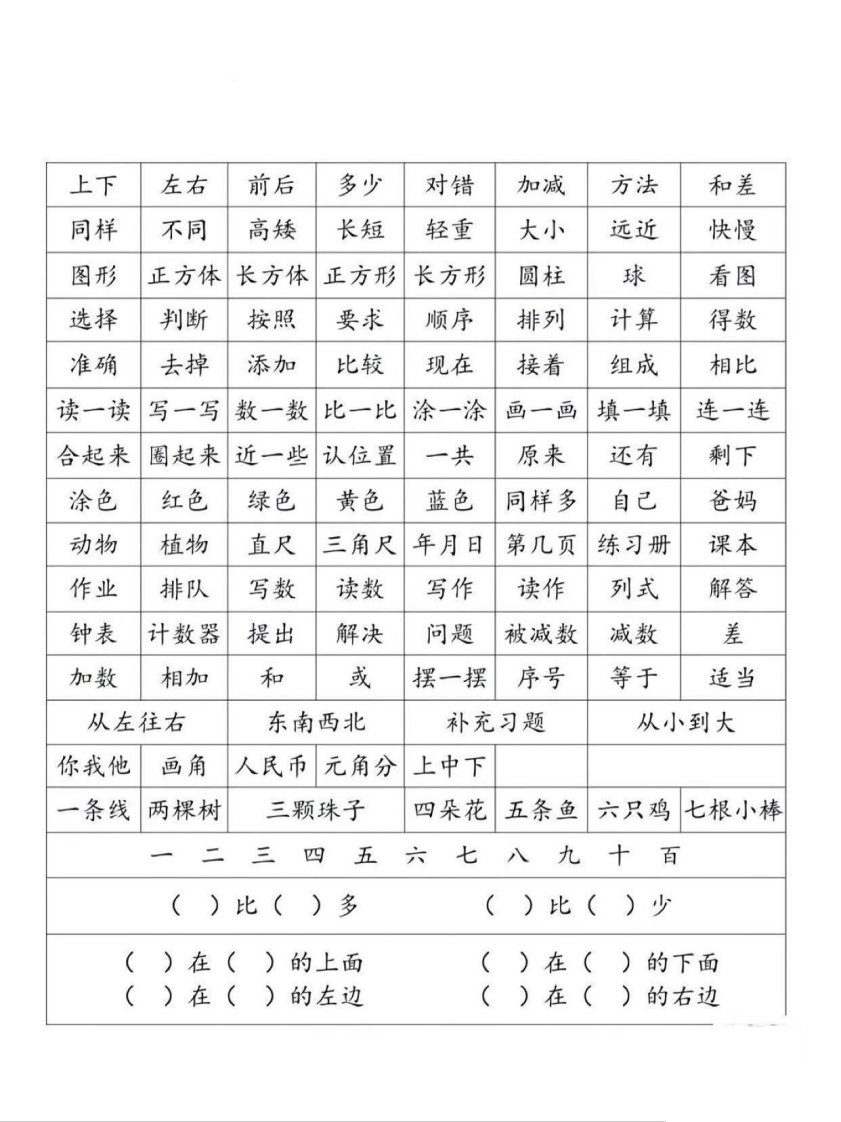 上下 左右 前后 多少 对错 加减 方法 和差
同样 不同 高矮 长短 轻重 大小 远近 快慢
图形 正方体 长方体 正方形 长方形 圆柱 球 看图
选择 判断 按照 要求 顺序 排列 计算 得数
准确 去掉 添加 比较 现在 接着 组成 相比
读一读 写一写 数一数 比一比 涂一涂 画一画 填一填 连一连
合起来 圈起来 近一些 认位置 一共 原来 还有 剩下
涂色 红色 绿色 黄色 蓝色 同样多 自己 爸妈
动物 植物 直尺 三角尺 年月日 第几页 练习册 课本
作业 排队 写数 读数 写作 读作 列式 解答
钟表 计数器 提出 解决 问题 被减数 减数 差
加数 相加 和 或 摆一摆 序号 等于 适当
从左往右 东南西北 补充习题 从小到大
你我他 画角 人民币 元角分 上中下
一条线 两棵树 三颗珠子 四朵花 五条鱼 六只鸡 七根小棒
一 二 三 四 五 六 七 八 九 十 百
（ ）比（ ）多 （ ）比（ ）少
（ ）在（ ）的上面 （ ）在（ ）的下面
（ ）在（ ）的左边 （ ）在（ ）的右边